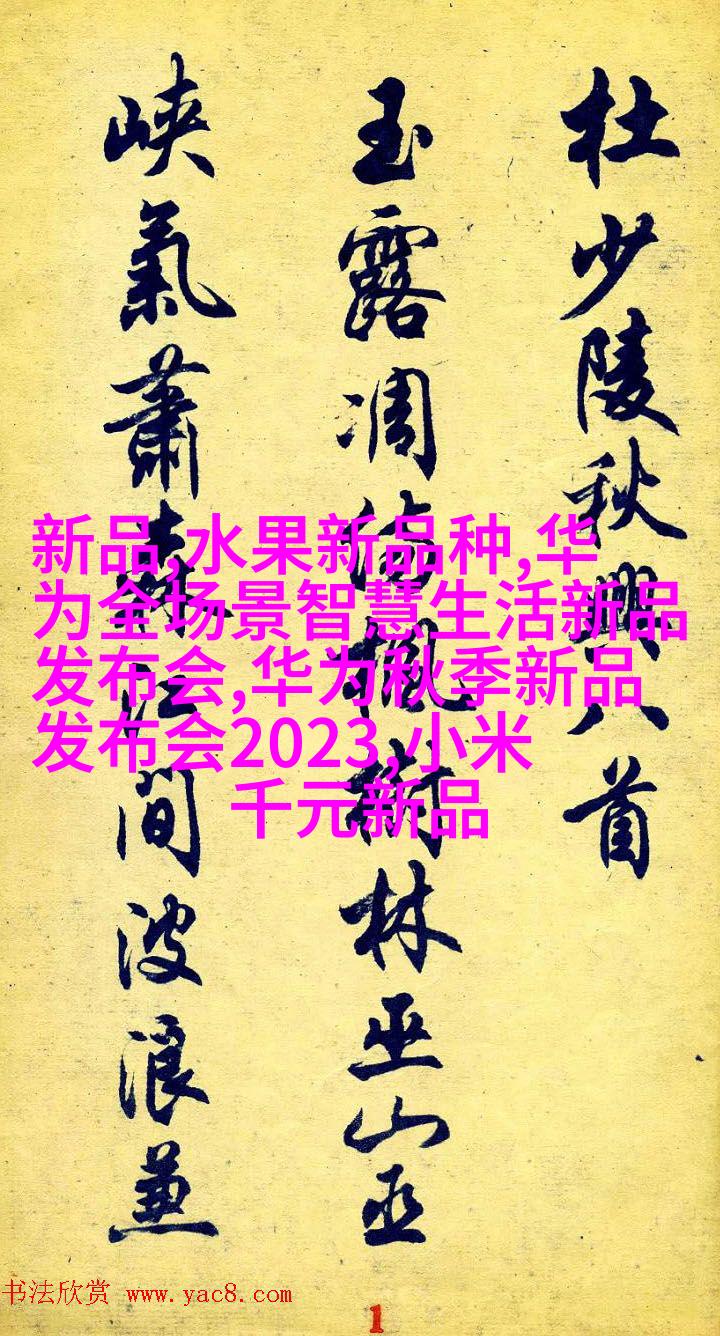 杜少陵秋興八首
玉露凋傷楓樹林巫山巫
峽氣蕭森江間波浪兼
新品,水果新品种,华
为全场景智慧生活新品
发布会,华为秋季新品
发布会2023,小米
千元新品
书法欣赏 www.yac8.com
1